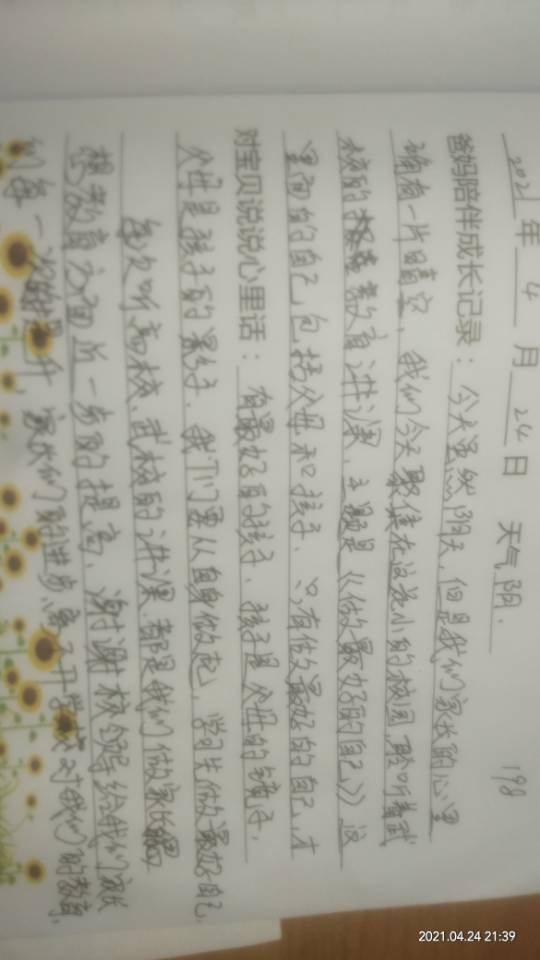 2021年 4 月 24 日 天气阴. 198
爸妈陪伴成长记录：今天虽然阴天，但是我们家长的心里
确有一片晴空，我们今天聚集在这小的校园，聆听着武
校的教育讲课，主题是《做最好的自己》这
里面的自己，包括父母和孩子，只有做最好的自己，才
对宝贝说说心里话：有最好的孩子，孩子是父母的镜子，
父母是孩子的影子，我们要从自身做起，学习先做最好自己.
每次听高校、武校的讲课都是我们做家长
教育方面进一步的提高，谢谢校领导给我们家长
们每一次的提升，家长们的进步离不开学校对我们的教育，
2021.04.24 21:39